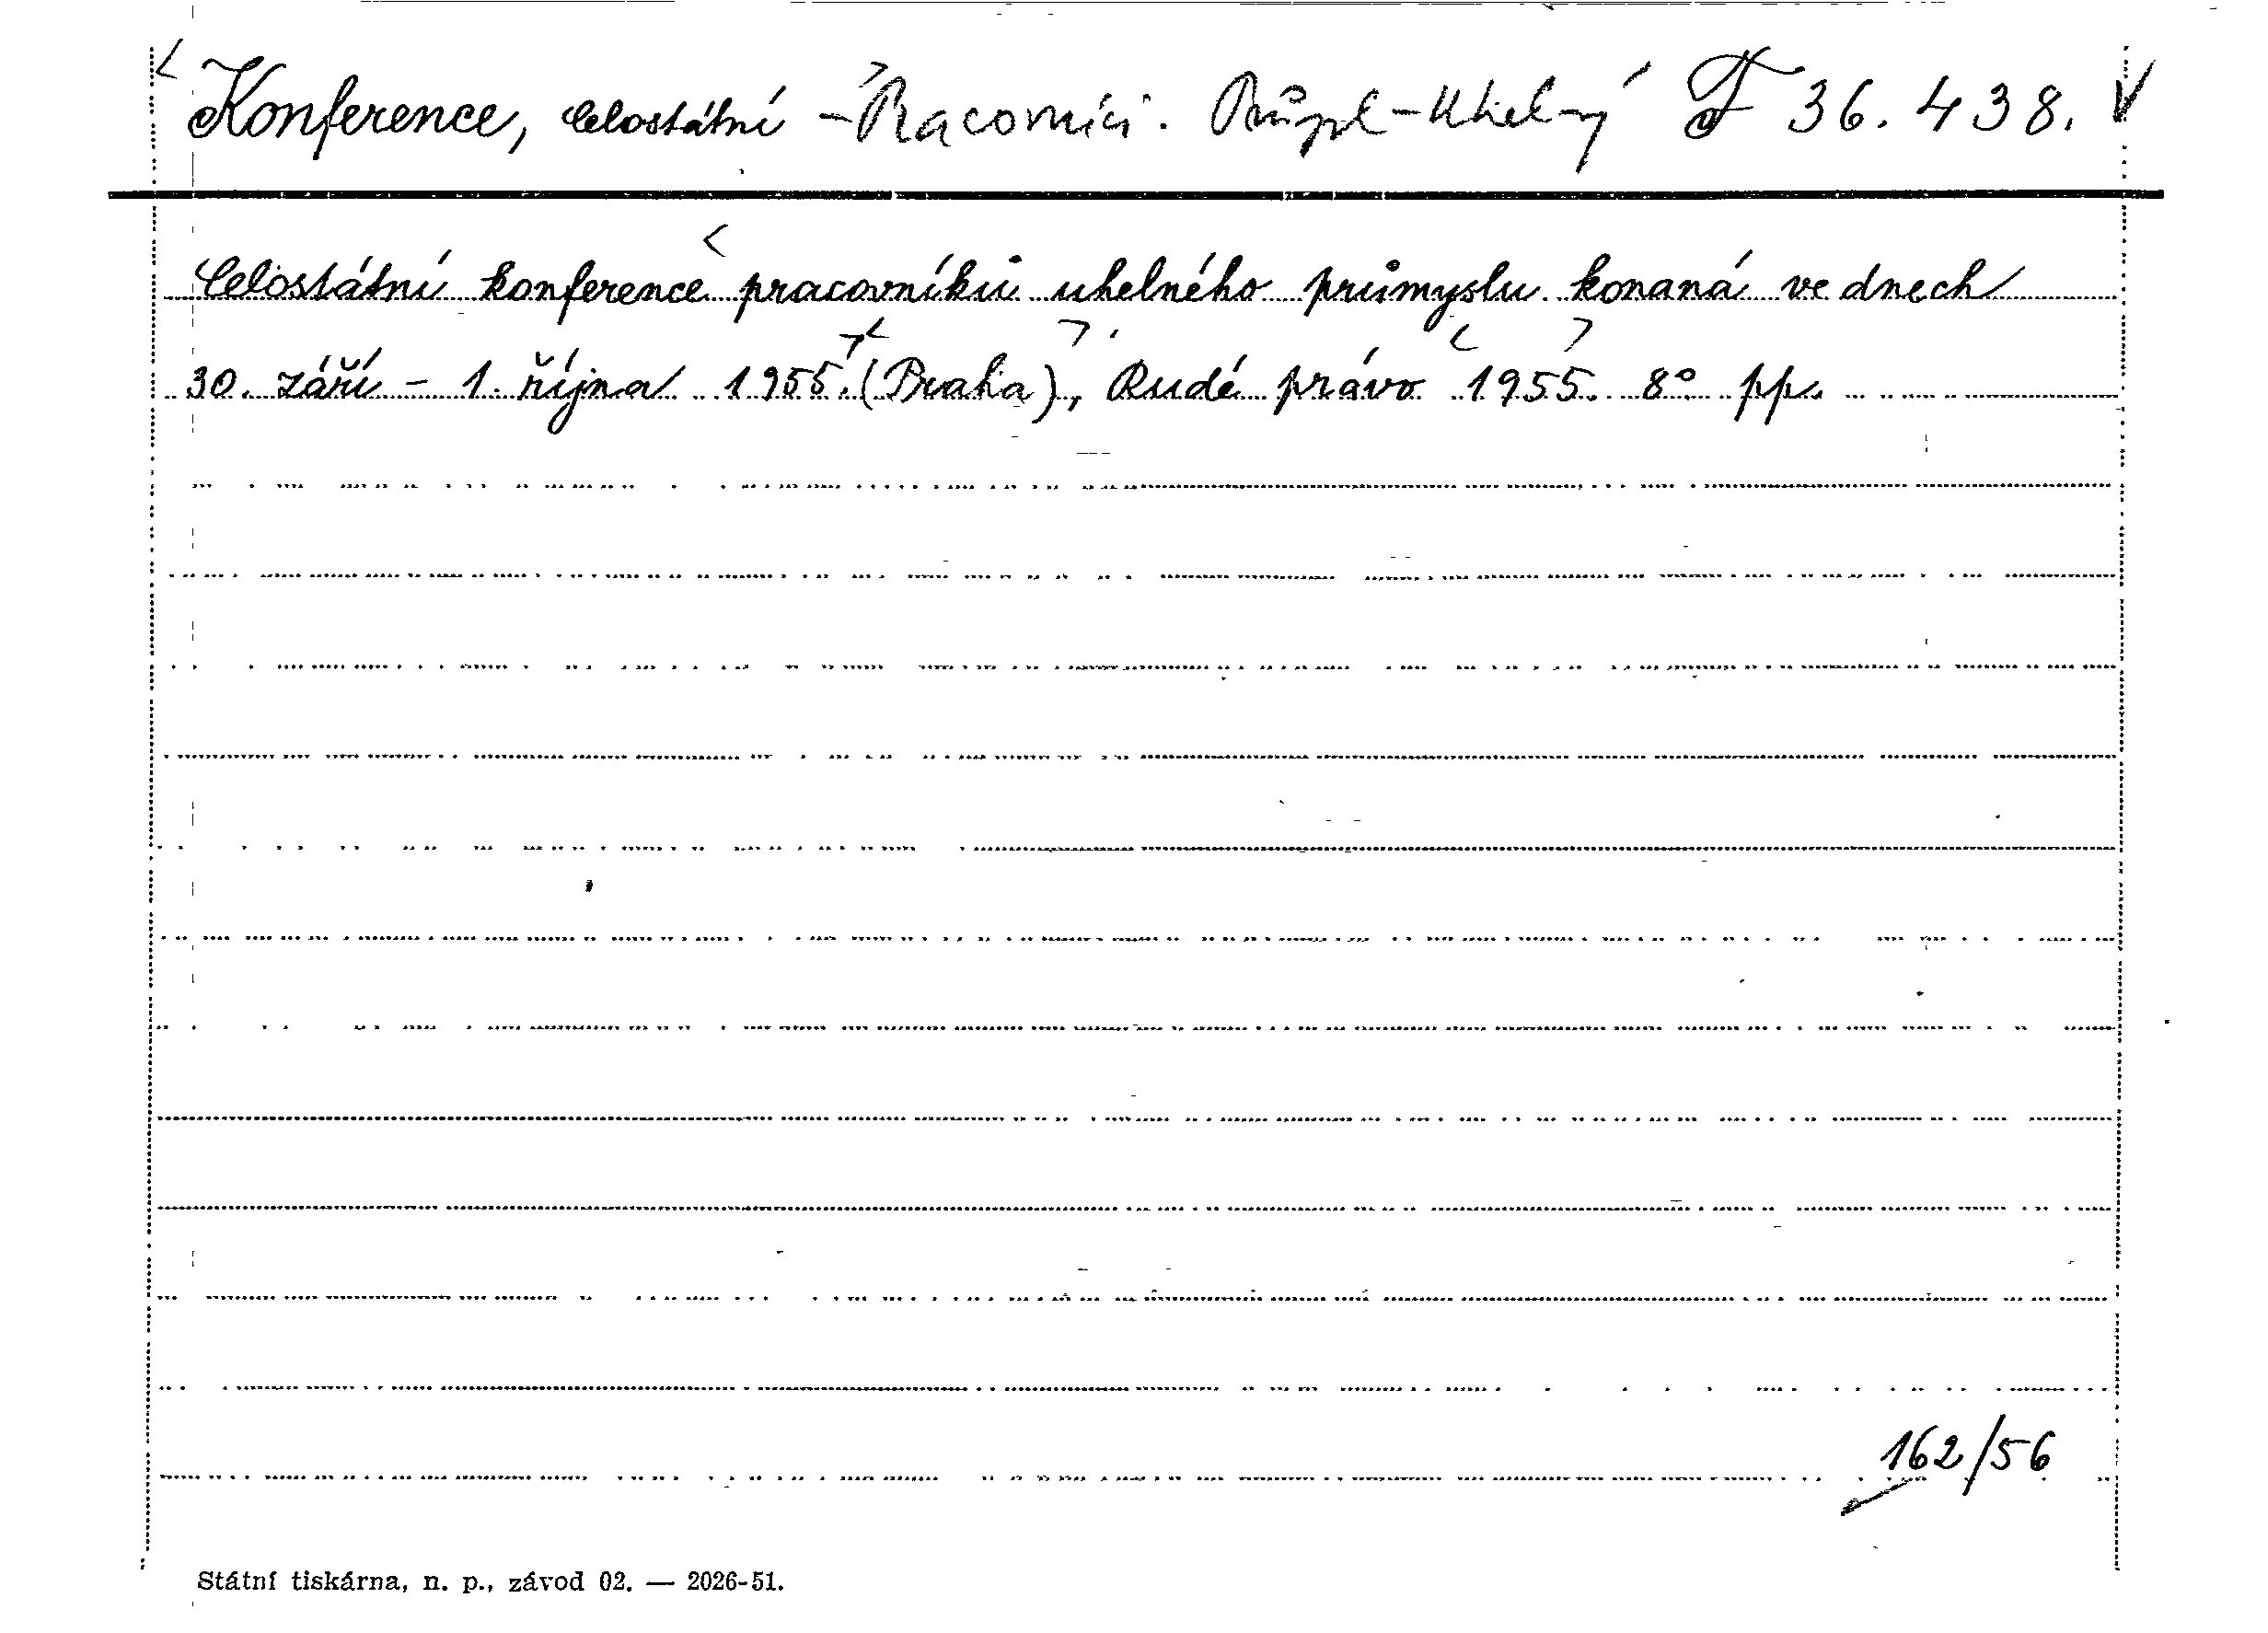 Konference, celostátní - Pracovníci. Průmysl - Uhelný F 36.438.
Celostátní konference pracovníků uhelného průmyslu konaná ve dnech
30. září - 1. října 1955. (Praha), Rudé právo 1955. 8° pp.
162/56
Státní tiskárna, n. p., závod 02. — 2026-51.